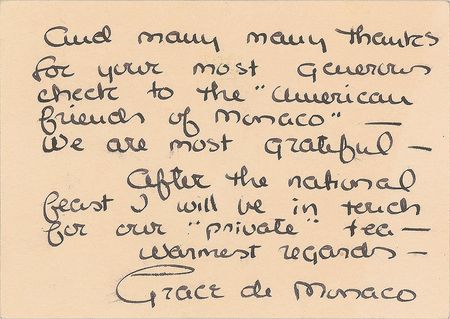 And many many thanks
for your most generous
check to the "American
friends of Monaco" —
We are most grateful —
After the national
feast I will be in touch
for our "private" tea —
Warmest regards —
Grace de Monaco